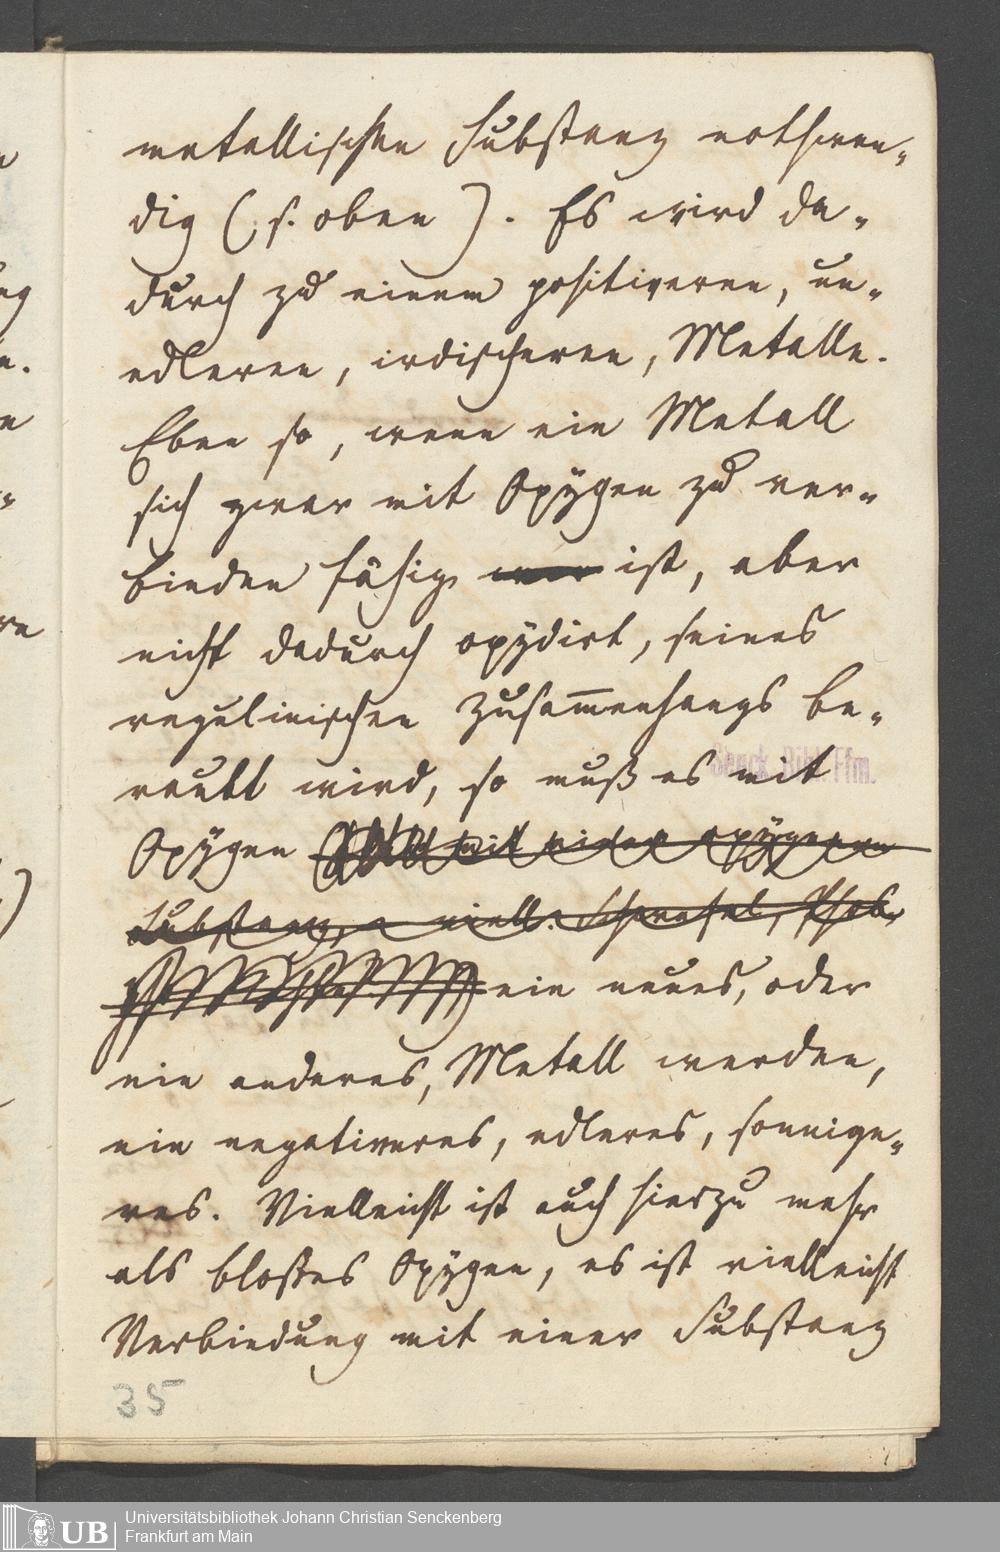 metallischen Substanz nothwen-
dig (s. oben). Es wird da-
durch zu einem positiveren, un-
edleren, irdischeren, Metalle.
Eben so, wenn ein Metall
sich zwar mit Oxÿgen zu ver-
binden fähig war ist, aber
nicht dadurch oxÿdirt, seines
regulinischen Zusam̅enhangs be-
raubt wird, so muß es mit
Senck. Bibl. Ffm.
Oxÿgen mit einer oxÿgenen
Substanz, viell. Schwefel, Phos-
ein neues, oder
ein anderes, Metall werden,
ein negativeres, edleres, sonnige-
res. Vielleicht ist auch hierzu mehr
als bloßes Oxÿgen, es ist vielleicht
Verbindung mit einer Substanz
35
UB
Universitätsbibliothek Johann Christian Senckenberg
Frankfurt am Main